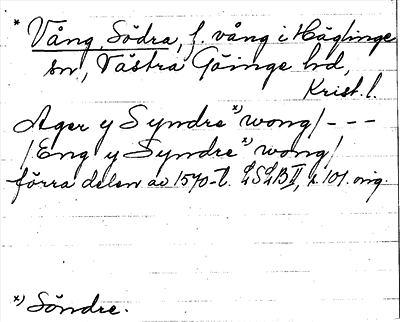 * Vång, Södra, f. vång i Häglinge
sn, Västra Göinge hd,
Krist. l.
Ager y Syndre *) wong / - - -
/ Eng y Syndre *) wong /
förra delen av 1570-t. LSLB II, s. 101. orig.
*) Söndre.